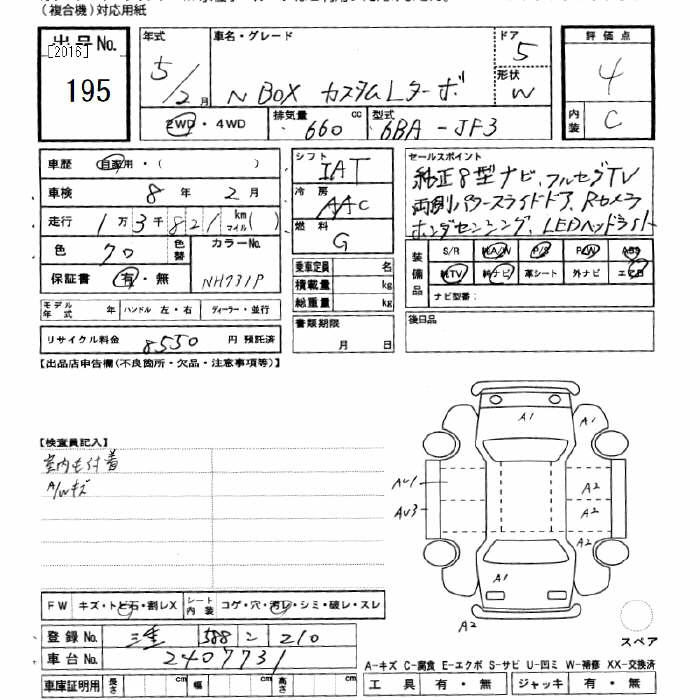 (複合機)対応用紙
出品No.
[2016]
195
年式
5/2月
車名・グレード
N BOX カスタムLターボ
ドア
5
形状
W
2WD・4WD
排気量
660 cc
型式
6BA-JF3
評価点
4
内装
C
車歴 自家用・( )
車検 8年 2月
走行 1万3千821 km マイル( )
色 クロ 色替
カラーNo.
NH731P
保証書 有・無
モデル年式 年 ハンドル 左・右 ディーラー・並行
リサイクル料金 8550 円 預託済
シフト
IAT
冷房
AAC
燃料
G
乗車定員 名
積載量 kg
総重量 kg
書類期限
月 日
セールスポイント
純正8型ナビ、フルセグTV
両側パワースライドドア、Rカメラ
ホンダセンシング、LEDヘッドライト
装備品
S/R 純A/W P/S P/W ABS
純TV 純ナビ 革シート 外ナビ エアB
ナビ型番:
後日品
【出品店申告欄(不良箇所・欠品・注意事項等)】
【検査員記入】
室内毛付着
A/Wキズ
A1
A1
AU1
A2
AU3
A2
A2
A1
A2
スペア
FW キズ・トビ石・割レX
シート内装 コゲ・穴・汚レ・シミ・破レ・スレ
登録No. 三重 588 こ 210
車台No. 2407731
車庫証明用 長さ cm 幅 cm 高さ cm
A-キズ C-腐食 E-エクボ S-サビ U-凹ミ W-補修 XX-交換済
工具 有・無 ジャッキ 有・無